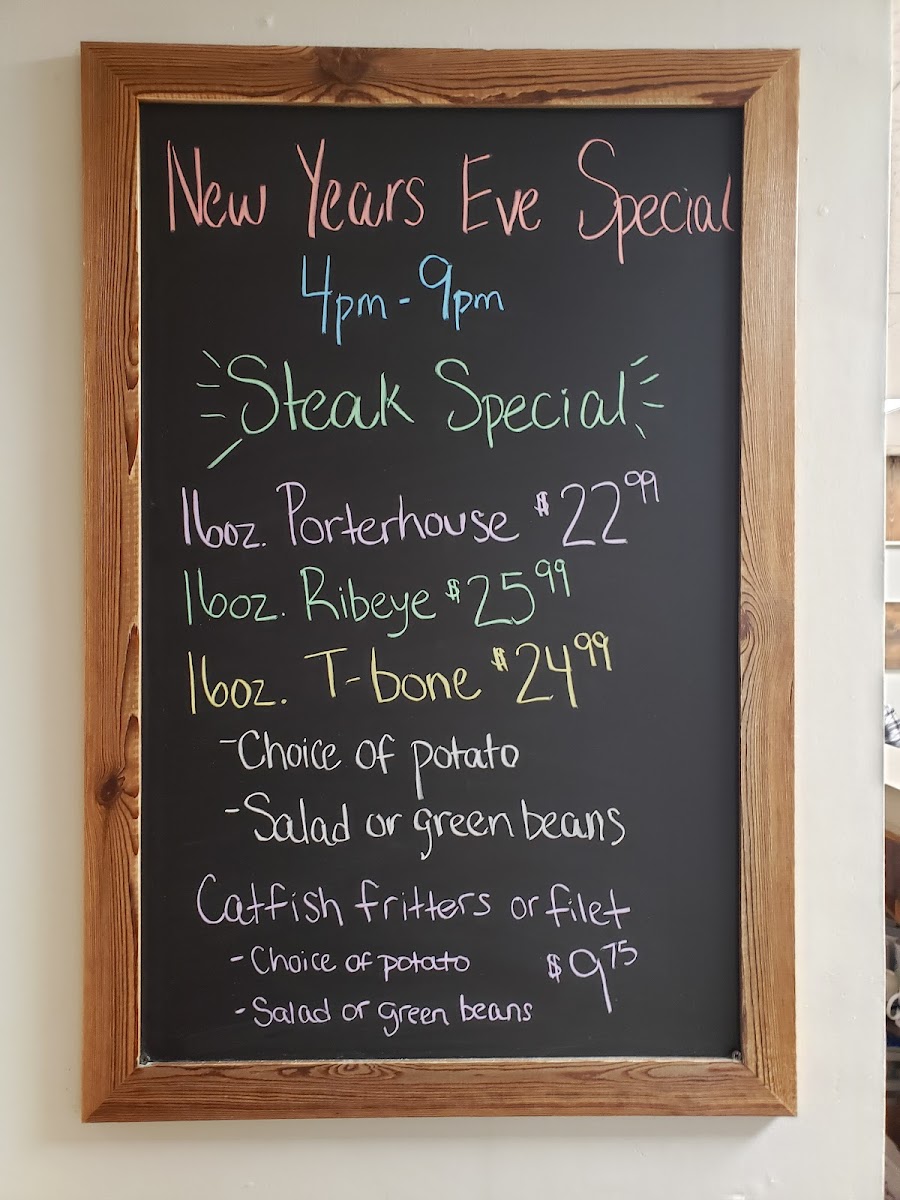 New Years Eve Special
4pm - 9pm
Steak Special
16oz. Porterhouse $22.99
16oz. Ribeye $25.99
16oz. T-bone $24.99
- Choice of potato
- Salad or green beans
Catfish fritters or filet
- Choice of potato $9.75
- Salad or green beans